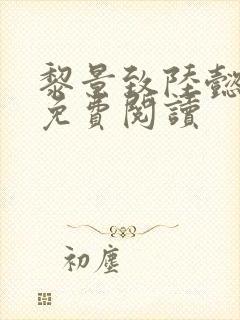 黎景致陸懿
免費閱讀
初塵